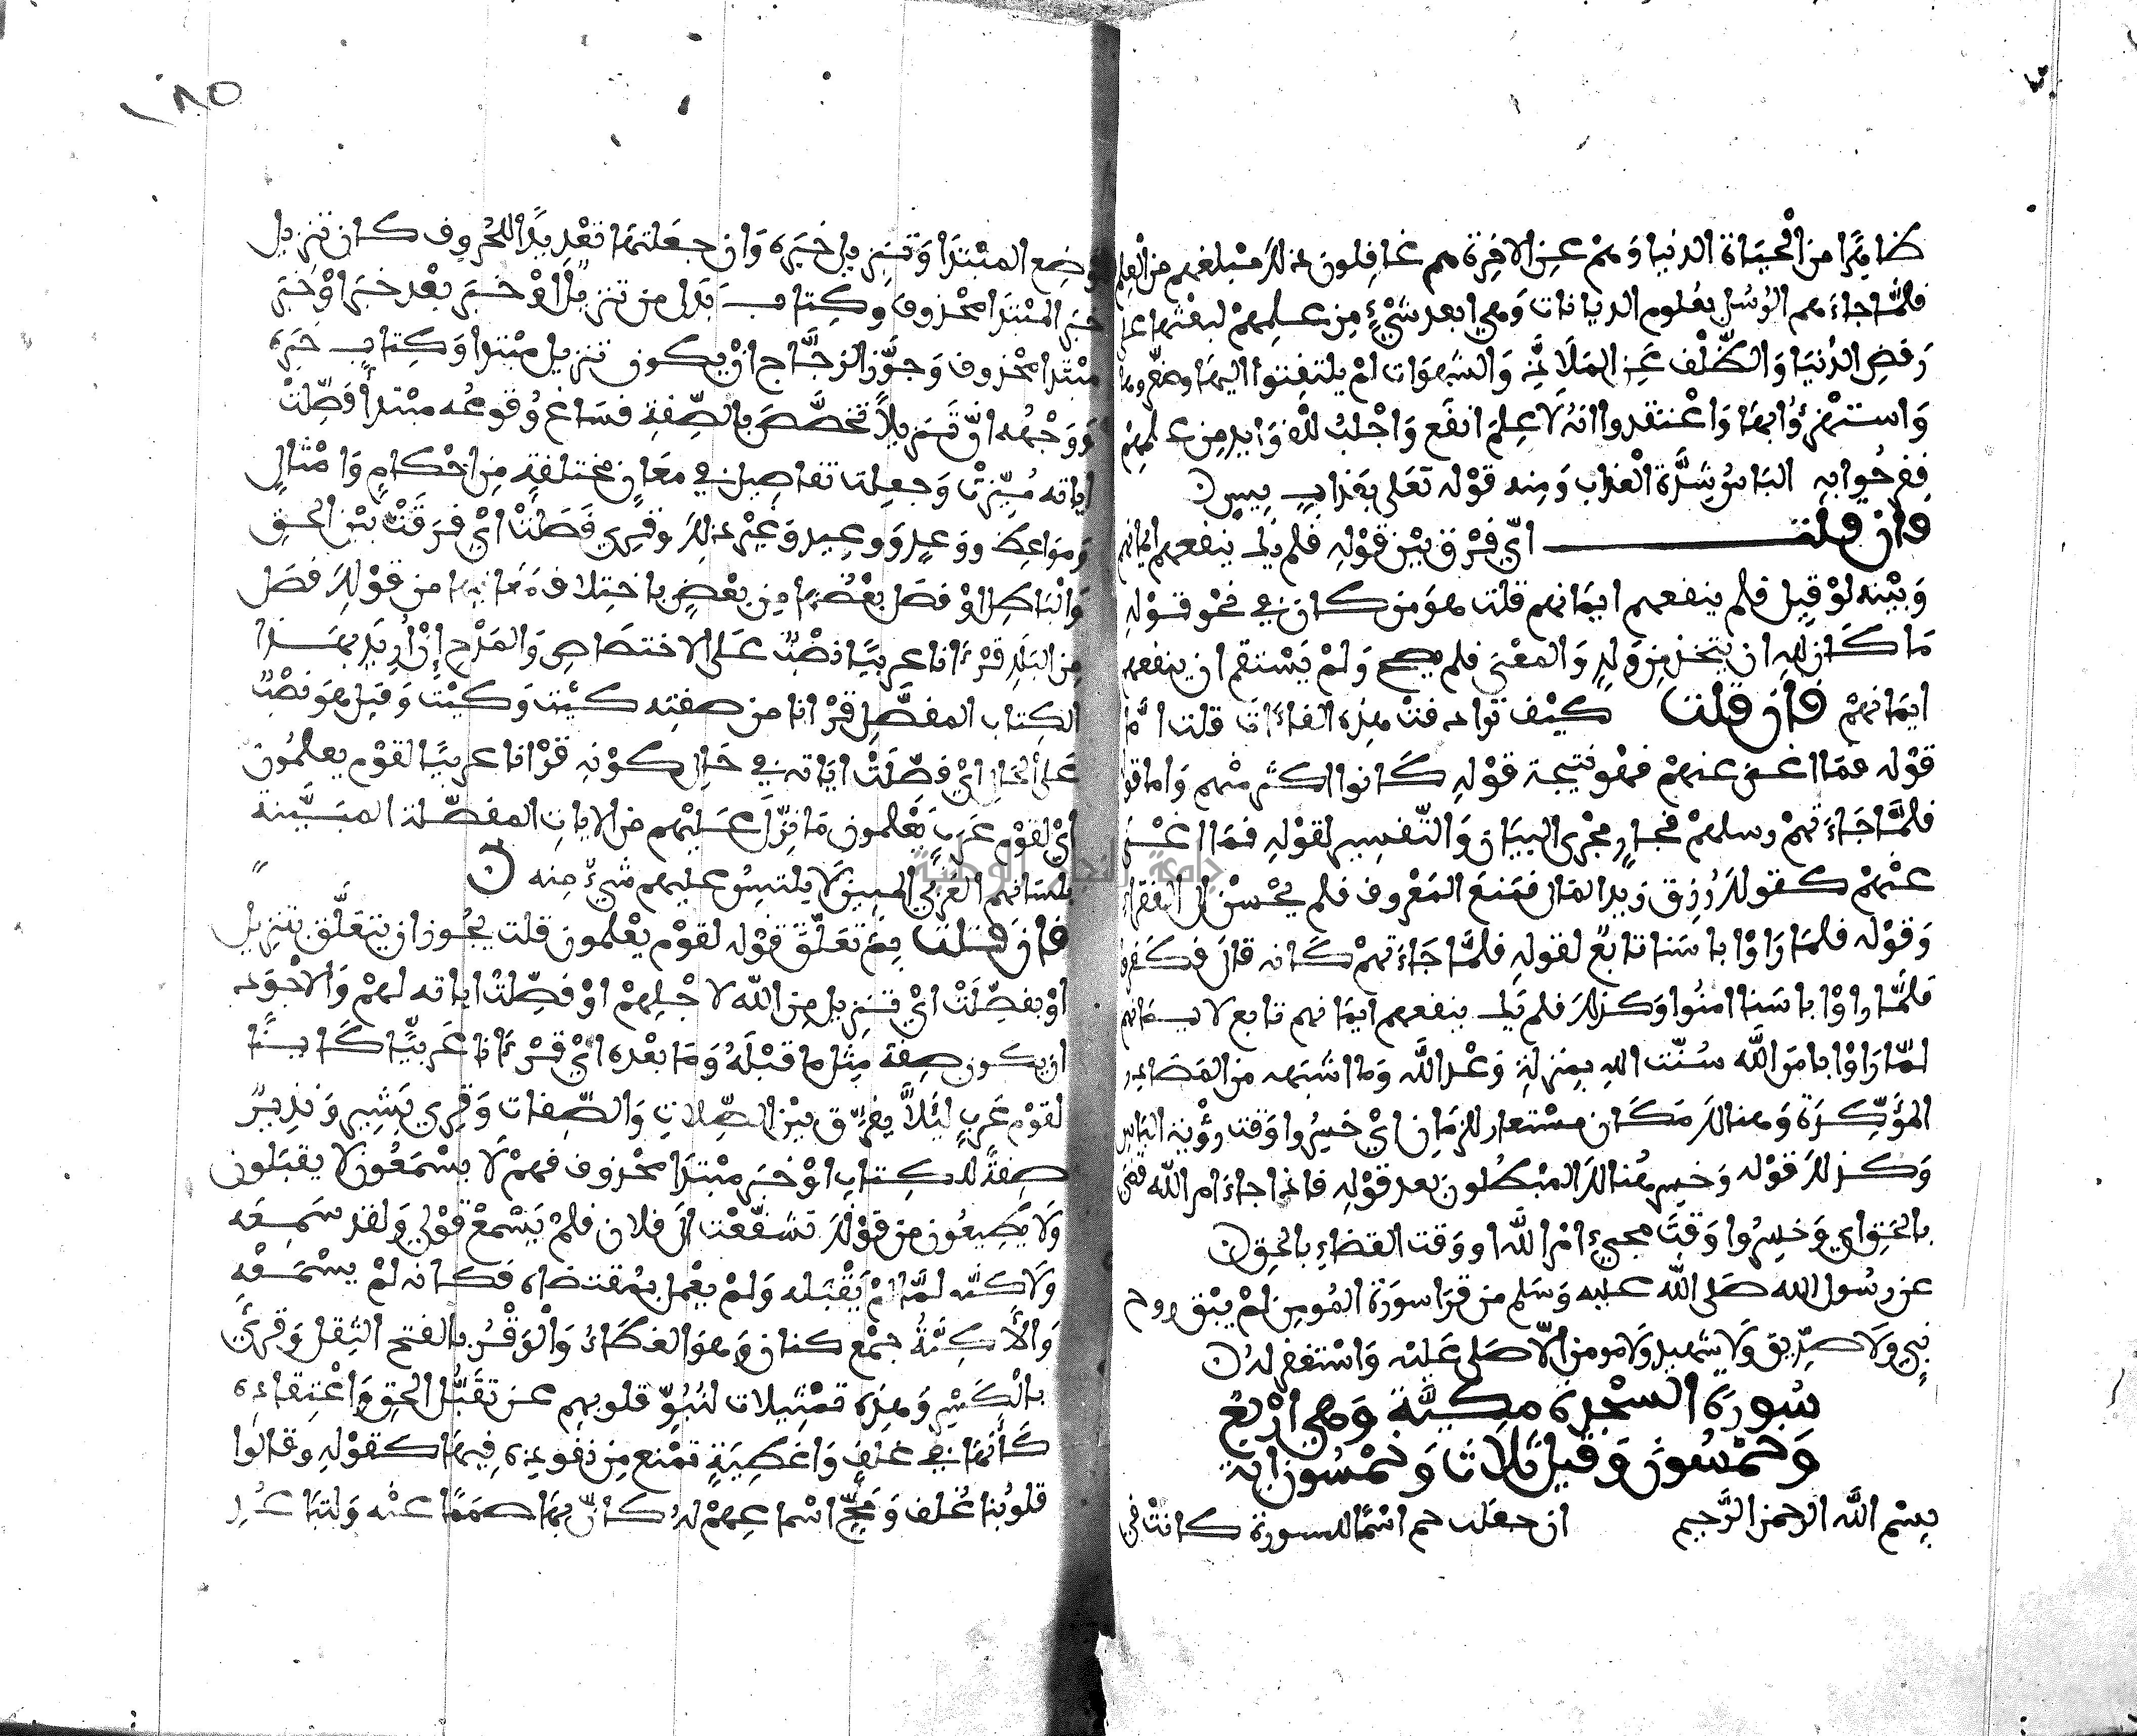 ظاهرا من الحياة الدنيا وهم عن الاخرة هم غافلون ذلك مبلغهم من العلم
فلما جاءهم الرسل بعلوم الديانات وهي ابعد شيء من علمهم لبعثها على
رفض الدنيا والظلف عن الملاذ والشهوات لم يلتفتوا اليها وصغروها
واستهزءوا بها واعتقدوا انه لا علم انفع واجلب للفوايد من علمهم
ففرحوا به الباس شدة العذاب ومنه قوله تعلى بعذاب بيس
فان قلت اي فرق بين قوله فلم يك ينفعهم ايمانهم
وبينه لو قيل فلم ينفعهم ايمانهم قلت هو من كان في نحو قوله
ما كان لله ان يتخذ من ولد والمعنى فلم يصح ولم يستقم ان ينفعهم
ايمانهم فان قلت كيف ترادفت هذه الفاءات قلت اما
قوله فما اغنى عنهم فهو نتيجة قوله كانوا اكثر منهم واما قوله
فلما جاءتهم رسلهم فجار مجرى البيان والتفسير لقوله فما اغنى
عنهم كقولك رزق زيد المال فمنع المعروف فلم يحسن الى الفقراء
وقوله فلما راوا باسنا تابع لقوله فلما جاءتهم كانه قال فكفروا
فلما راوا باسنا امنوا وكذلك فلم يك ينفعهم ايمانهم تابع لايمانهم
لما راوا باس الله سنت الله بمنزلة وعد الله وما اشبهه من المصادر
المؤكدة وهنالك مكان مستعار للزمان اي خسروا وقت رؤية الباس
وكذلك قوله وخسر هنالك المبطلون بعد قوله فاذا جاء امر الله قضي
بالحق اي وخسروا وقت مجيء امر الله او وقت القضاء بالحق
عن رسول الله صلى الله عليه وسلم من قرا سورة المومن لم يبق روح
نبي ولا صديق ولا شهيد ولا مومن الا صلى عليه واستغفر له
سورة السجدة مكية وهي اربع
وخمسون وقيل ثلاث وخمسون اية
بسم الله الرحمن الرحيم ان جعلت حم اسما للسورة كانت في
١٨٥
موضع المبتدا وتنزيل خبره وان جعلتها تعديدا للحروف كان تنزيل
خبر المبتدا محذوف وكتاب بدل من تنزيل او خبر بعد خبر او خبر
مبتدا محذوف وجوز الزجاج ان يكون تنزيل مبتدا وكتاب خبره
ووجهه ان تنزيلا تخصص بالصفة فساغ وقوعه مبتدا فصلت
اياته ميزت وجعلت تفاصيل في معان مختلفة من احكام وامثال
ومواعظ ووعد ووعيد وغير ذلك وقري فصلت اي فرقت بين الحق
والباطل او فصل بعضها من بعض باختلاف معانيها من قولك فصل
من البلد قرءانا عربيا نصب على الاختصاص والمدح اي اريد بهذا
الكتاب المفصل قرانا من صفته كيت وكيت وقيل هو نصب
على الحال اي فصلت اياته في حال كونه قرانا عربيا لقوم يعلمون
اي لقوم عرب يعلمون ما نزل عليهم من الايات المفصلة المبينة
بلسانهم العربي المبين لا يلتبس عليهم شيء منه
فان قلت بم تعلق قوله لقوم يعلمون قلت يجوز ان يتعلق بتنزيل
او بفصلت اي تنزيل من الله لاجلهم او فصلت اياته لهم والاجود
ان يكون صفة مثل ما قبله وما بعده اي قرءانا عربيا كاينا
لقوم عرب ليلا يفرق بين الصلات والصفات وقري بشير ونذير
صفة للكتاب او خبر مبتدا محذوف فهم لا يسمعون لا يقبلون
ولا يطيعون من قولك تشفعت الى فلان فلم يسمع قولي ولقد سمعه
ولاكنه لما لم يقبله ولم يعمل بمقتضاه فكانه لم يسمعه
والاكنة جمع كنان وهو الغطاء والوقر بالفتح الثقل وقري
بالكسر وهذه تمثيلات لنبو قلوبهم عن تقبل الحق واعتقاده
كانها في غلف واغطية تمنع من نفوذه فيها كقوله وقالوا
قلوبنا غلف ومج اسماعهم له كان بها صمما عنه ولتباعد